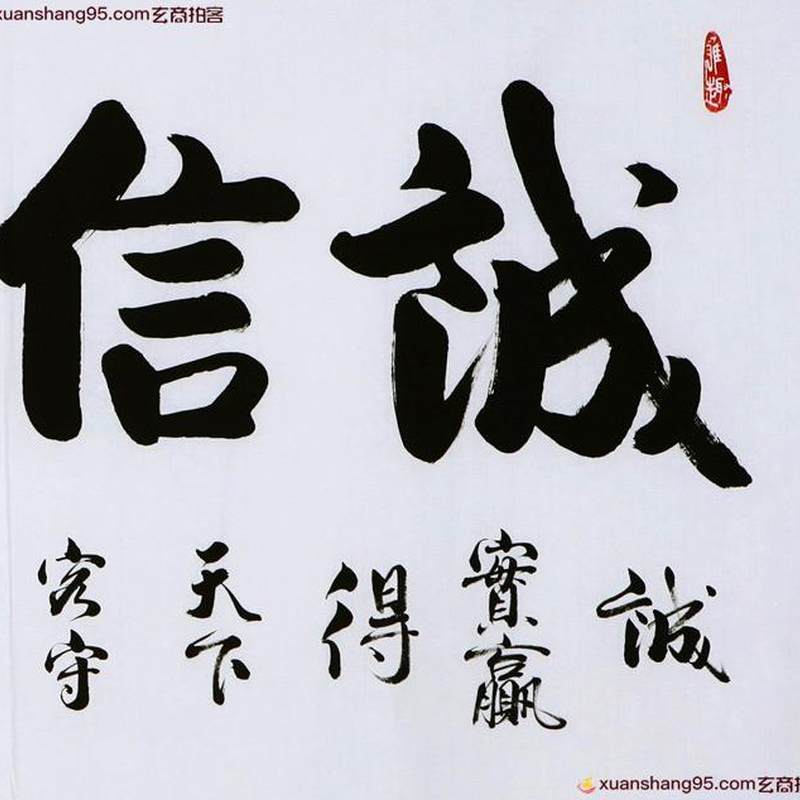 xuanshang95.com玄商拍客
誠信
誠
實贏
得
天下
客守
xuanshang95.com玄商拍客